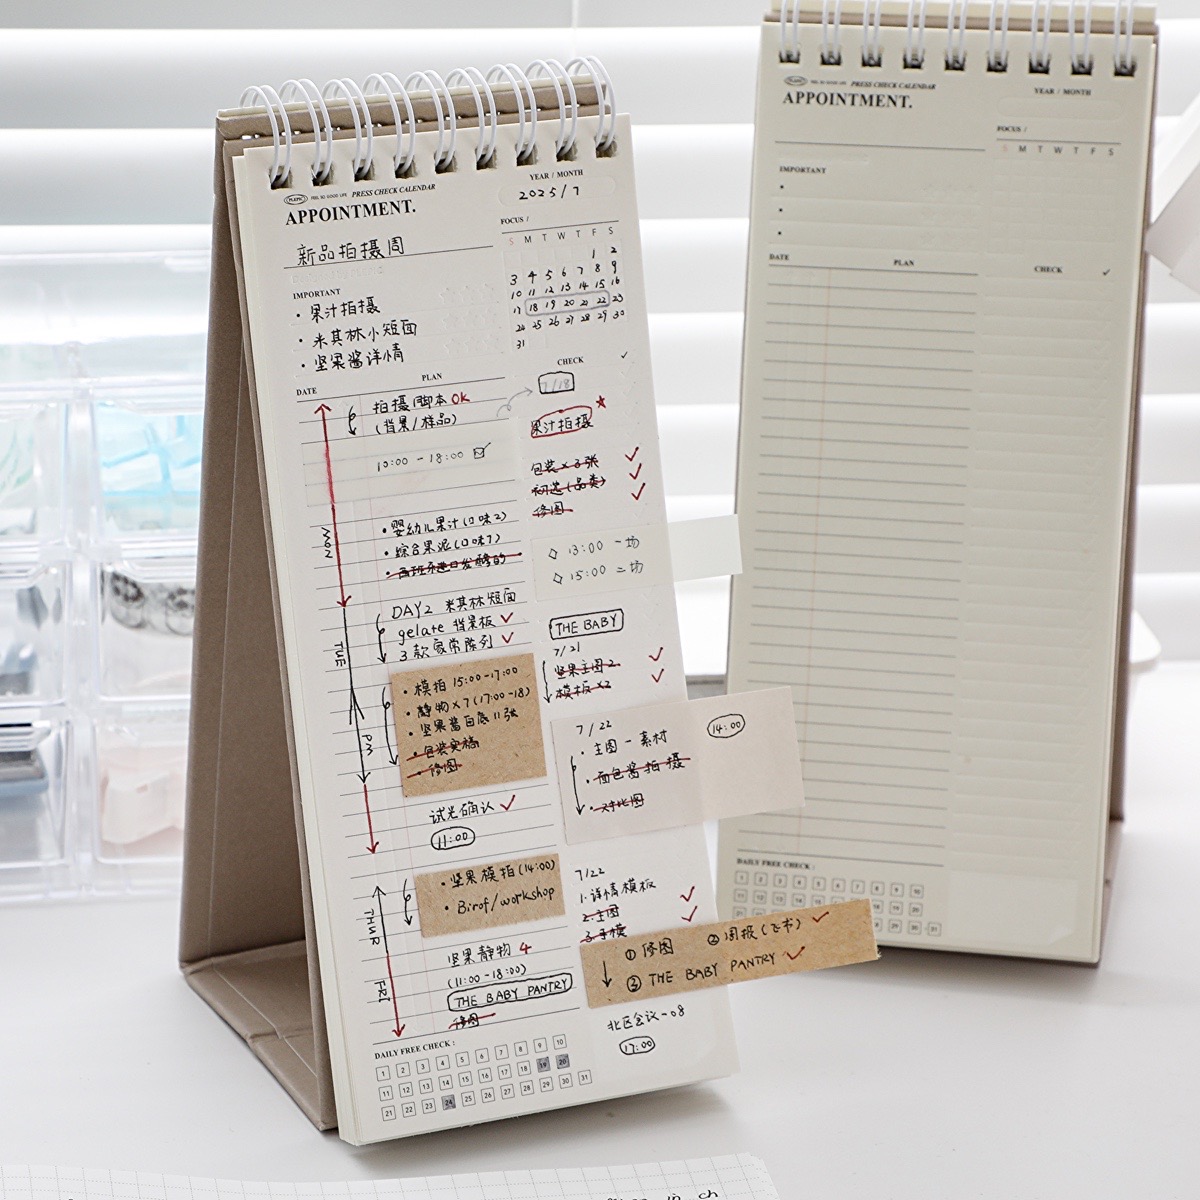 PRESS CHECK CALENDAR
APPOINTMENT.
YEAR / MONTH
2025/7
新品拍摄周
FOCUS /
S M T W T F S
1 2
3 4 5 6 7 8 9
10 11 12 13 14 15 16
17 18 19 20 21 22 23
24 25 26 27 28 29 30
31
IMPORTANT
· 果汁拍摄
· 米其林小短面
· 坚果酱详情
DATE
PLAN
CHECK
MON
拍摄脚本 OK
(背景/样品)
10:00 - 18:00
· 婴幼儿果汁(口味2)
· 综合果泥(口味7)
TUE
DAY2 米其林短面
gelate 背景板
3款家常陈列
PM
· 模拍 15:00-17:00
· 静物×7(17:00-18)
· 坚果酱白底11张
· 包装实稿
· 修图
试光确认
11:00
THUR
· 坚果模拍(14:00)
· Birof/workshop
FRI
坚果静物 4
(11:00-18:00)
THE BABY PANTRY
修图
7/18
果汁拍摄
包装×3张
初选(品类)
修图
13:00 一场
15:00 二场
THE BABY
7/21
坚果主图2
模板×2
7/22
· 主图-素材
· 面包酱拍摄
· 对比图
14:00
7/22
1.详情模板
2.主图
3.手模
① 修图 ② 周报(飞书)
③ THE BABY PANTRY
北区会议-08
17:00
DAILY FREE CHECK :
1 2 3 4 5 6 7 8 9 10
11 12 13 14 15 16 17 18 19 20
21 22 23 24 25 26 27 28 29 30 31
PRESS CHECK CALENDAR
APPOINTMENT.
YEAR / MONTH
FOCUS /
S M T W T F S
IMPORTANT
DATE
PLAN
CHECK
DAILY FREE CHECK :
1 2 3 4 5 6 7 8 9 10